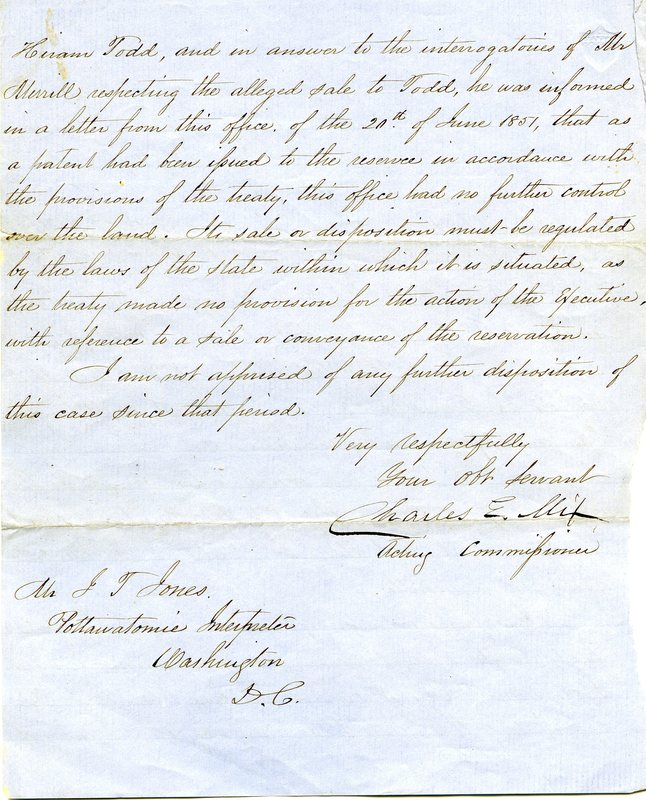 Hiram Todd, and in answer to the interrogatories of Mr
Merrill respecting the alleged sale to Todd, he was informed
in a letter from this office, of the 20th. of June 1851, that as
a patent had been issued to the reservee in accordance with
the provisions of the treaty, this office had no further control
over the land. Its sale or disposition must be regulated
by the laws of the state within which it is situated, as
the treaty made no provision for the action of the Executive,
with reference to a sale or conveyance of the reservation.
I am not apprised of any further disposition of
this case since that period.
Very respectfully
Your obt servant
Charles E. Mix
Acting Commissioner
Mr J T Jones.
Pottawatomie Interpreter
Washington
D.C.